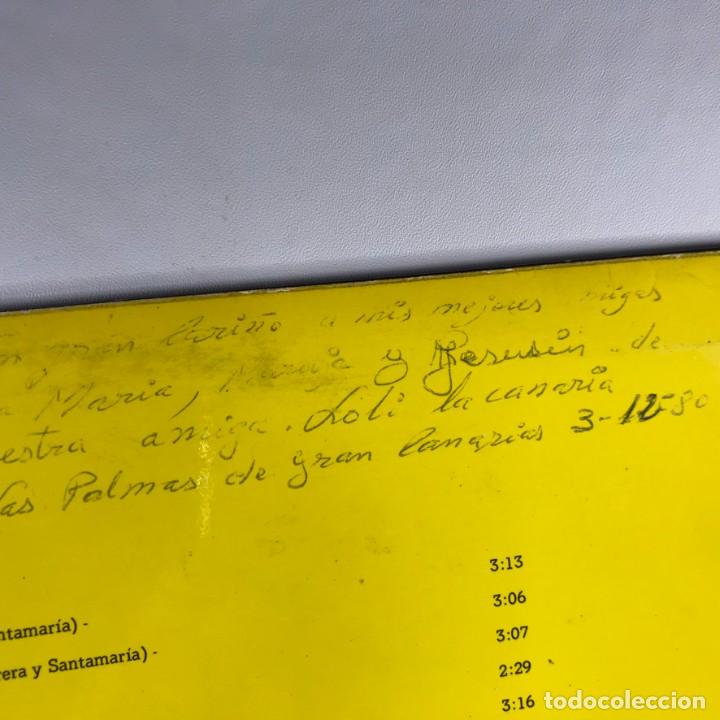 gran Cariño a mis mejores migas
a Maria, Maruja y Jesusin de
estra amiga. Loli la canaria
Las Palmas de gran Canarias 3-12-80
3:13
3:06
ntamaría) - 3:07
rera y Santamaría) - 2:29
3:16
todocoleccion